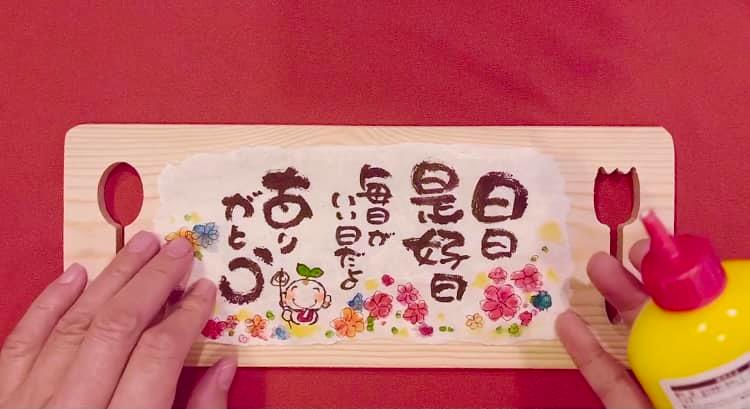 日日
是好日
毎日が
いい日だよ
あり
がとう